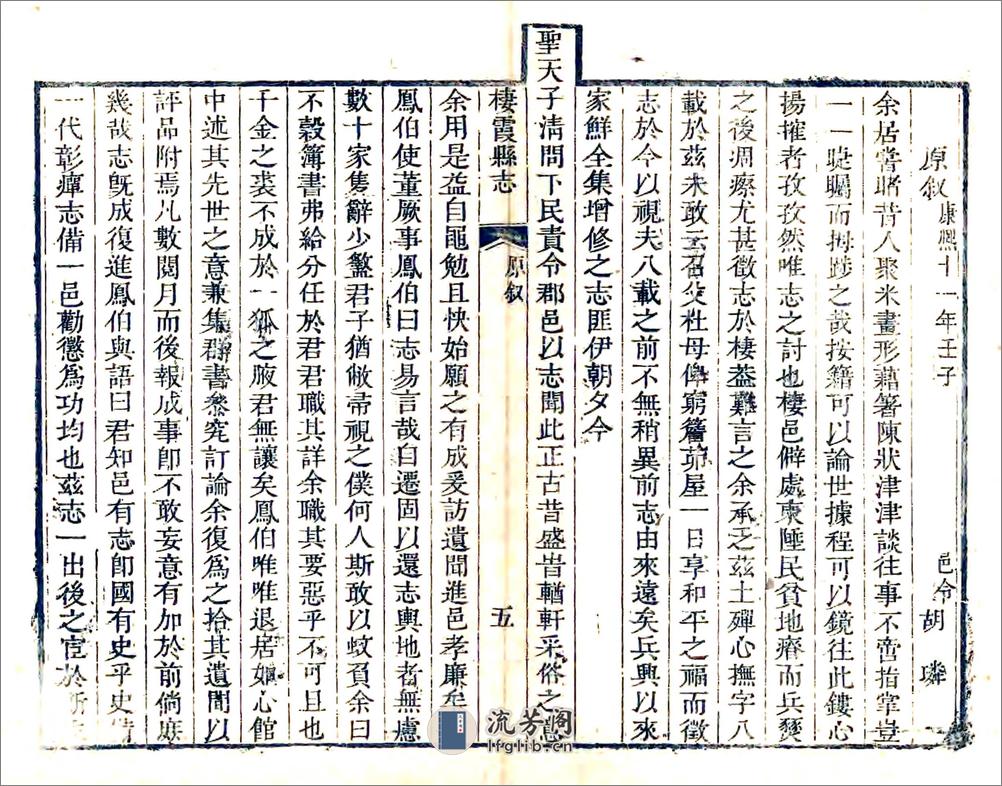 原叙 康熙十一年壬子 邑令 胡璘
余居嘗睹昔人聚米畫形藉箸陳狀津津談往事不啻指掌豈
一一睫矚而拇踄之哉按籍可以論世據程可以鏡往此鏤心
揚搉者孜孜然唯志之討也棲邑僻處東陲民貧地瘠而兵燹
之後凋瘵尤甚徵志於棲葢難言之余承乏茲土殫心撫字八
載於茲未敢云召父杜母俾窮簷茆屋一日享和平之福而徵
志於今以視夫八載之前不無稍異前志由來遠矣兵興以來
家鮮全集增修之志匪伊朝夕今
聖天子清問下民責令郡邑以志聞此正古昔盛旹輶軒采俗之意
棲霞縣志 原叙 五
余用是益自黽勉且快始願之有成爰訪遺聞進邑孝廉牟
鳳伯使董厥事鳳伯曰志易言哉自遷固以還志輿地者無慮
數十家隻辭少盭君子猶敝帚視之僕何人斯敢以蚊負余曰
不穀簿書弗給分任於君君職其詳余職其要惡乎不可且也
千金之裘不成於一狐之腋君無讓矣鳳伯唯唯退居如心館
中述其先世之意兼集群書叅究訂論余復為之拾其遺聞以
評品附焉凡數閱月而後報成事卽不敢妄意有加於前倘庶
幾哉志旣成復進鳳伯與語曰君知邑有志卽國有史乎史備
一代彰癉志備一邑勸懲爲功均也茲志一出後之宦於斯生
流芳阁
lfglib.cn